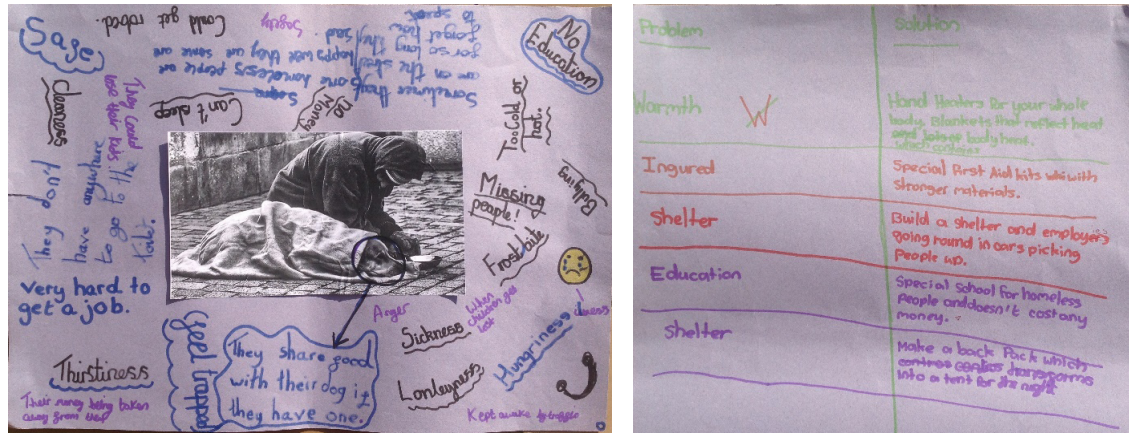 Sage
Could get robed.
Safety
No
Education
Sometimes they
are on the street
for so long they
forget how
to speak
homeless people are
happy wer they are
Cleaness
They Could
lose their kids!
Can't sleep
no
Money
Too Cold or
hot.
Bullying
They don't
have anywhere
to go to the
toilet.
Missing
people!
Frostbite
Very hard to
get a job.
Anger
When
children get
lost
Illness
Sickness
Hungriness
feel trapped
They share good
with their dog if
they have one.
Thirstiness
Lonleyness
Their money being taken
away from them
Kept awake by traffic
Problem
Solution
Warmth
W
Hand Heaters for your whole
body. Blankets that reflect heat
and lots of body heat.
which contains
Ingured
Special First Aid kits with
stronger materials.
Shelter
Build a shelter and employers
going round in cars picking
People up.
Education
Special School for homeless
People and doesn't cost any
money.
Shelter
Make a back Pack which
transforms
into a tent for the night